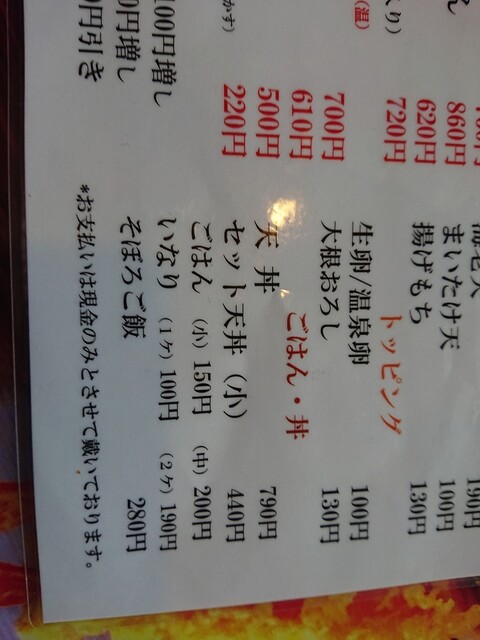 860円
620円
720円
700円
610円
500円
220円
100円増し
0円増し
0円引き
まいたけ天 100円
揚げもち 130円
トッピング
生卵/温泉卵 100円
大根おろし 130円
ごはん・丼
天丼 790円
セット天丼（小） 440円
ごはん（小）150円（中）200円
いなり（1ケ）100円（2ケ）190円
そぼろご飯 280円
*お支払いは現金のみとさせて戴いております。